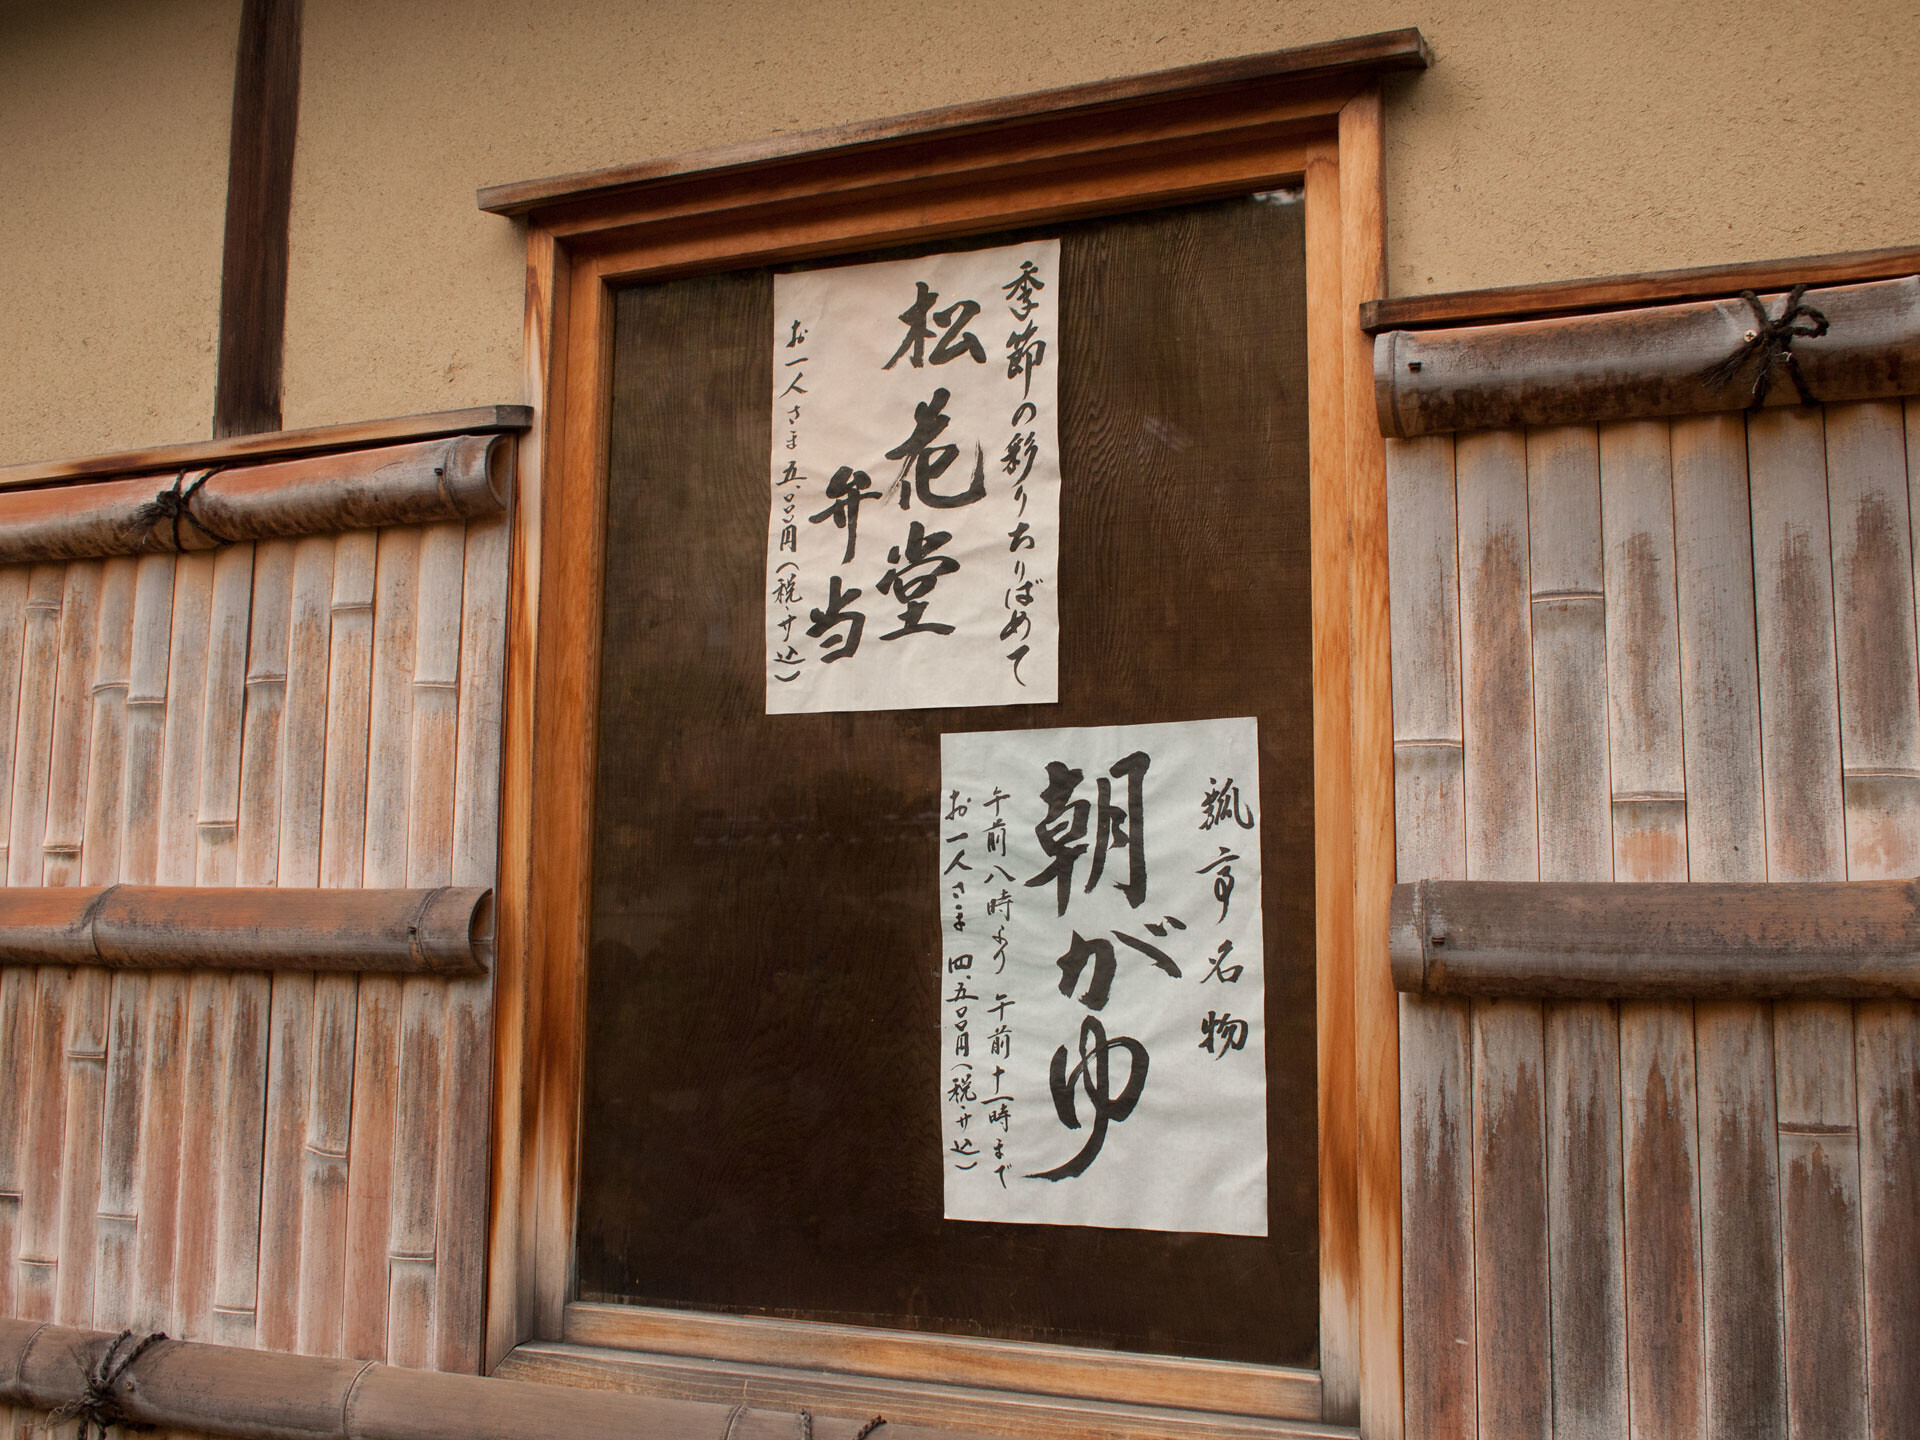 季節の彩りちりばめて
松花堂
弁当
お一人さま 五、〇〇〇円(税・サ込)
瓢亭名物
朝がゆ
午前八時より 午前十一時まで
お一人さま 四、五〇〇円(税・サ込)